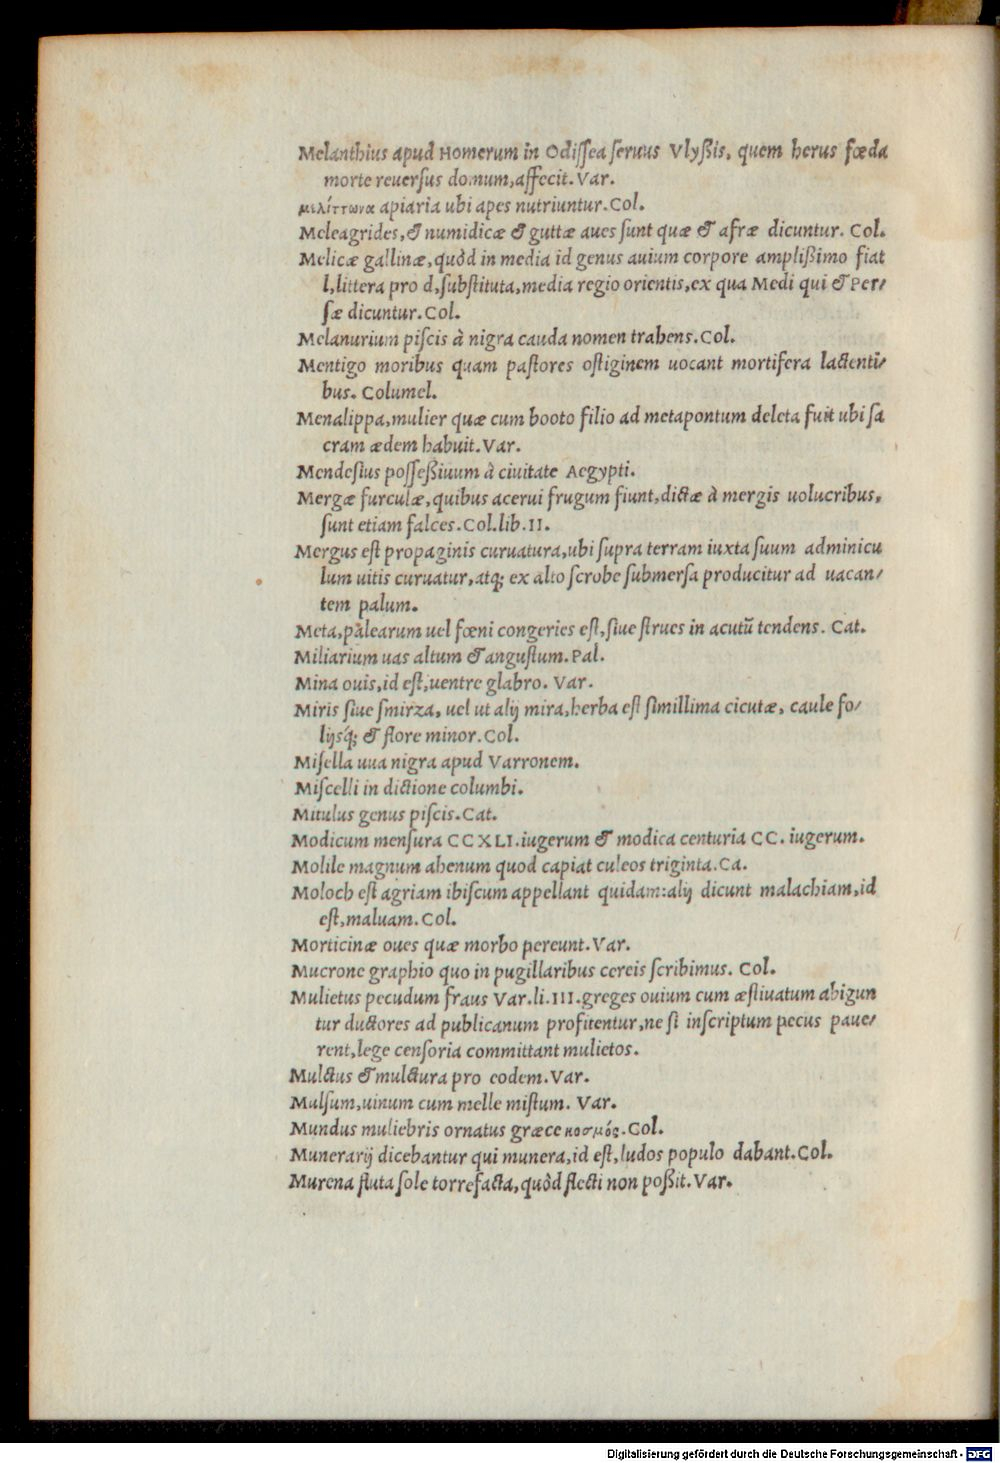 Melanthius apud Homerum in Odissea seruus Vlyßis, quem herus fœda
morte reuersus domum, affecit. Var.
μελίττωνα apiaria ubi apes nutriuntur. Col.
Meleagrides, & numidicæ & guttæ aues sunt quæ & afræ dicuntur. Col.
Melicæ gallinæ, quòd in media id genus auium corpore amplißimo fiat
l, littera pro d, substituta, media regio orientis, ex qua Medi qui & Per/
sæ dicuntur. Col.
Melanurium piscis à nigra cauda nomen trahens. Col.
Mentigo moribus quam pastores ostiginem uocant mortifera lactenti/
bus. Columel.
Menalippa, mulier quæ cum booto filio ad metapontum deleta fuit ubi sa
cram ædem habuit. Var.
Mendesius possessiuum à ciuitate Aegypti.
Mergæ furculæ, quibus acerui frugum fiunt, dictæ à mergis uolucribus,
sunt etiam falces. Col. lib. II.
Mergus est propaginis curuatura, ubi supra terram iuxta suum adminicu
lum uitis curuatur, atq; ex alto scrobe submersa producitur ad uacan/
tem palum.
Meta, palearum uel fœni congeries est, siue strues in acutũ tendens. Cat.
Miliarium uas altum & angustum. Pal.
Mina ouis, id est, uentre glabro. Var.
Miris siue smirza, uel ut alij mira, herba est simillima cicutæ, caule fo/
lijsq́; & flore minor. Col.
Misella uua nigra apud Varronem.
Miscelli in dictione columbi.
Mitulus genus piscis. Cat.
Modicum mensura CCXLI. iugerum & modica centuria CC. iugerum.
Molile magnum ahenum quod capiat culeos triginta. Ca.
Moloch est agriam ibiscum appellant quidam: alij dicunt malachiam, id
est, maluam. Col.
Morticinæ oues quæ morbo pereunt. Var.
Mucrone graphio quo in pugillaribus cereis scribimus. Col.
Mulietus pecudum fraus Var. li. III. greges ouium cum æstiuatum abigun
tur ductores ad publicanum profitentur, ne si inscriptum pecus paue/
rent, lege censoria committant mulietos.
Mulctus & mulctura pro eodem. Var.
Mulsum, uinum cum melle mistum. Var.
Mundus muliebris ornatus græce κοσμός. Col.
Munerarij dicebantur qui munera, id est, ludos populo dabant. Col.
Murena fluta sole torrefacta, quòd flecti non poßit. Var.
Digitalisierung gefördert durch die Deutsche Forschungsgemeinschaft - DFG